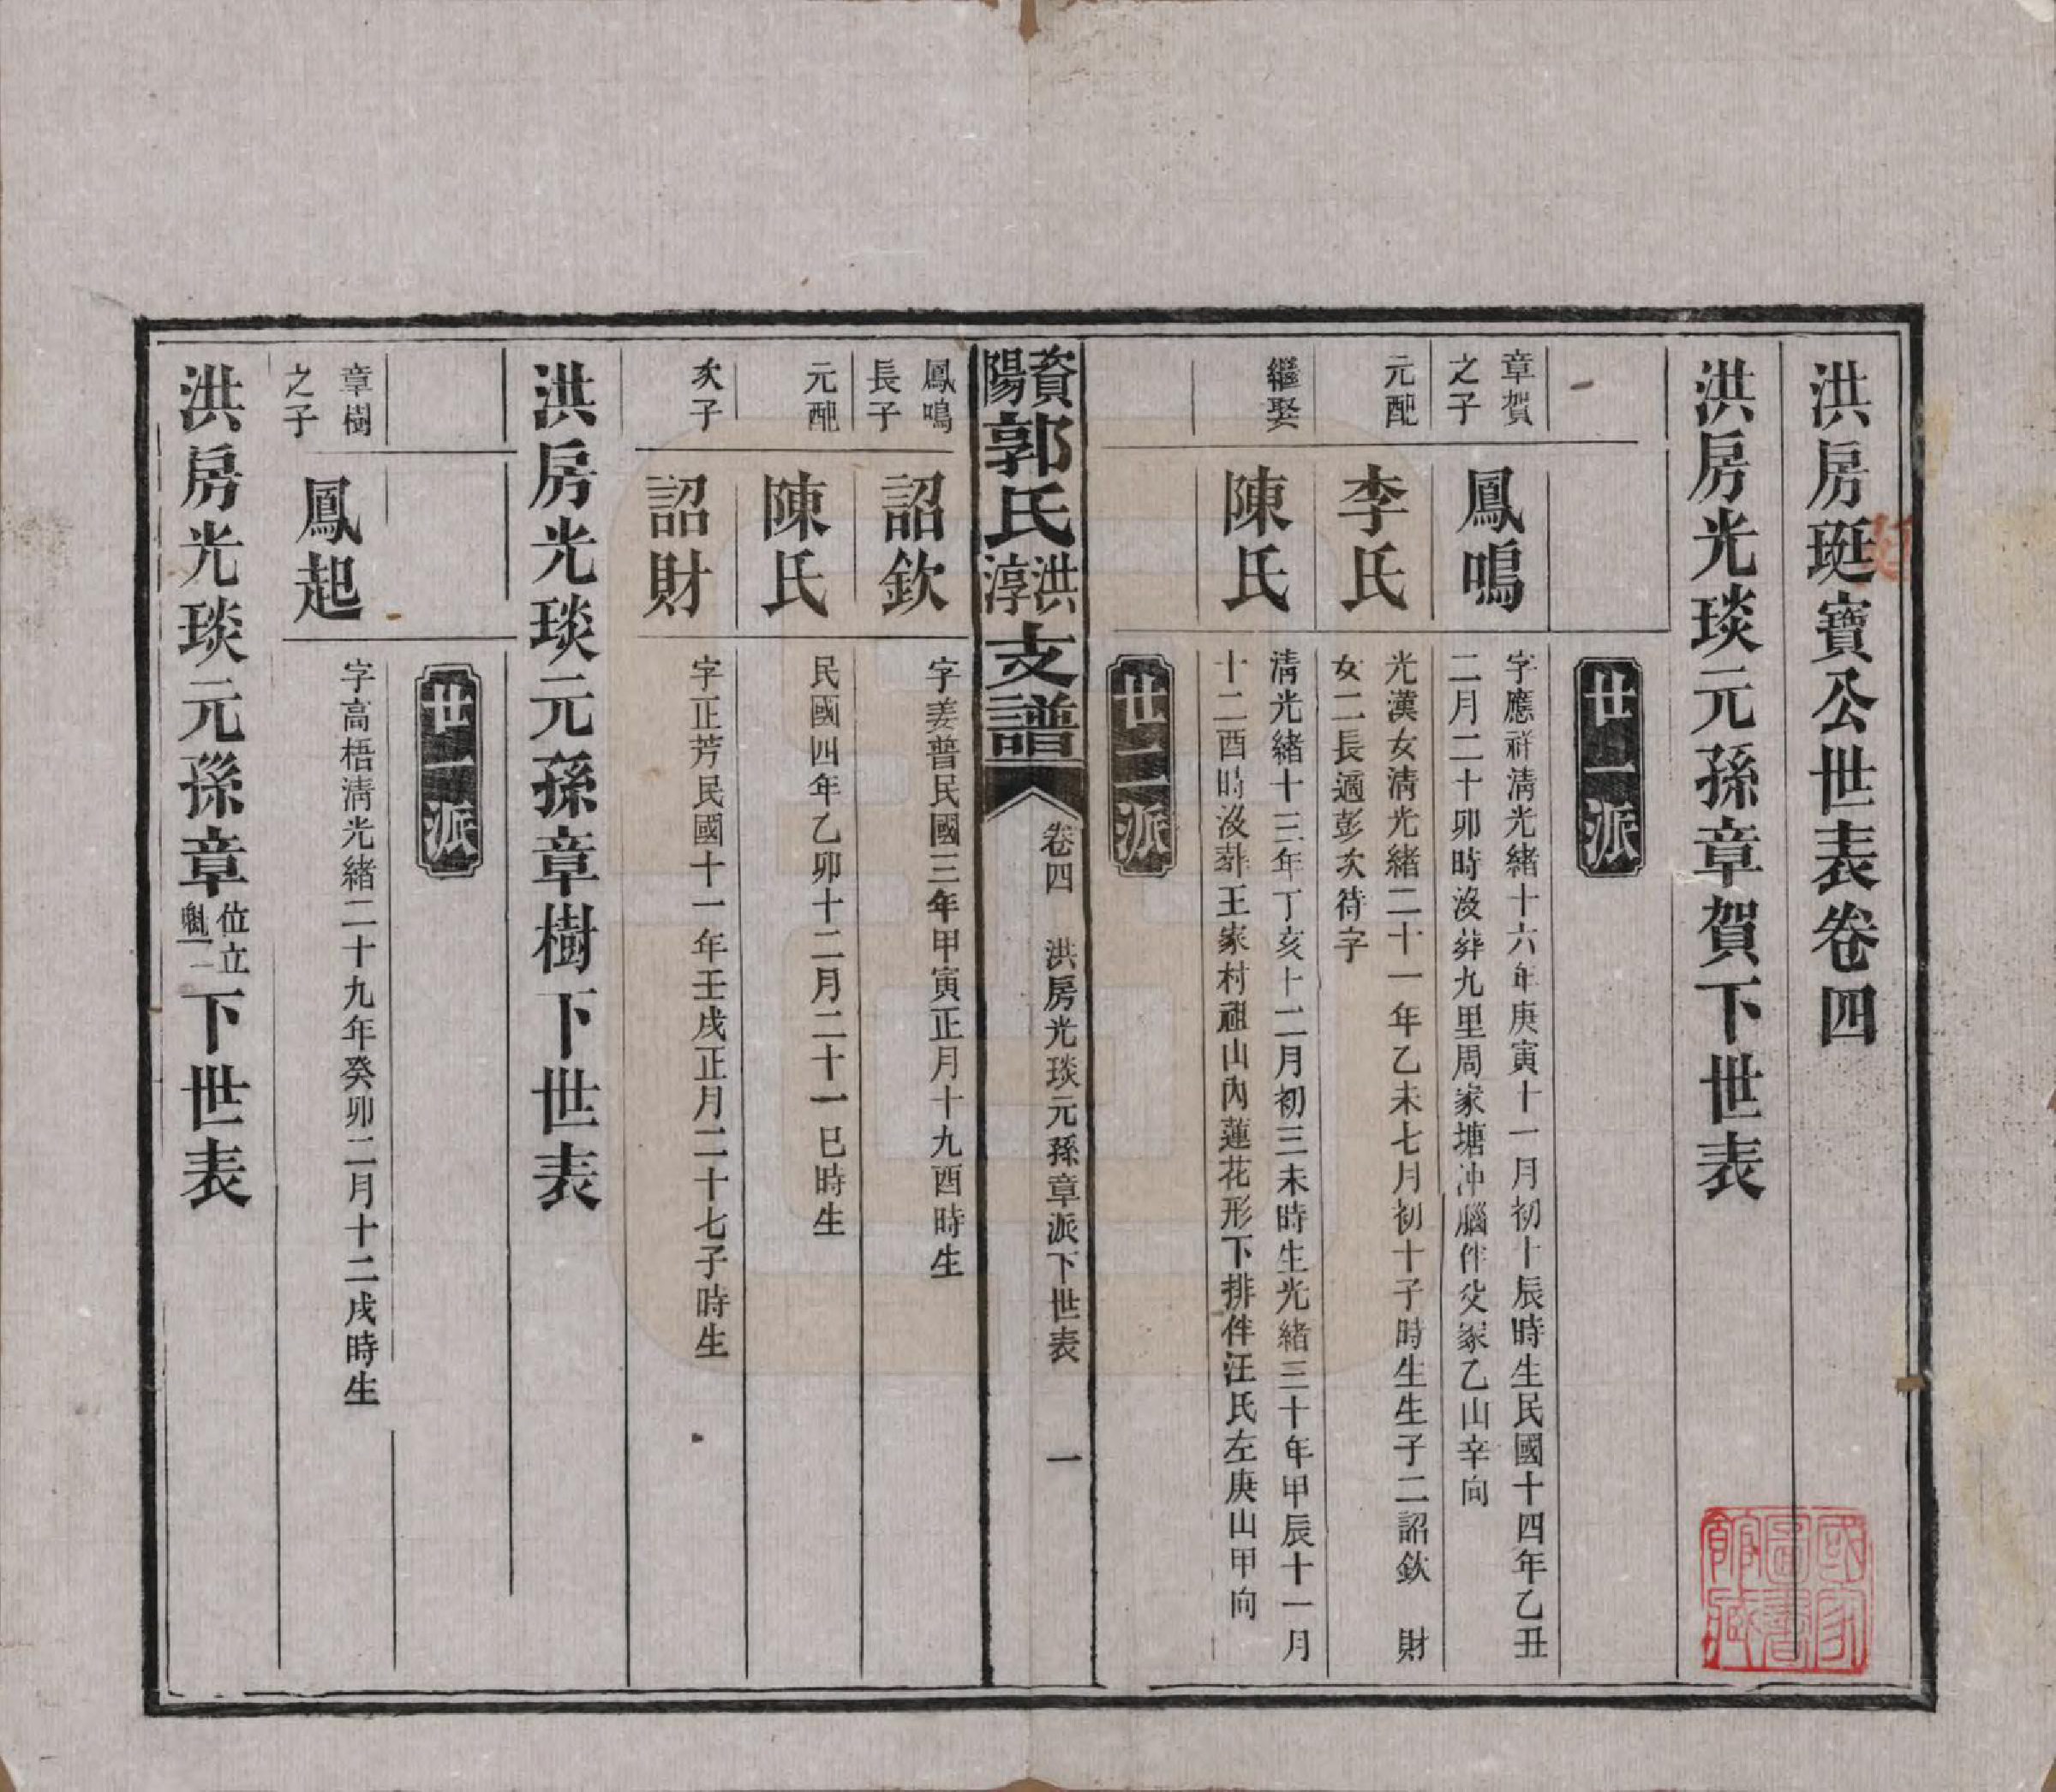 洪房珽寶公世表卷四
洪房光琰元孫章賀下世表
廿一派
章賀之子
鳳鳴
字應祥清光緒十六年庚寅十一月初十辰時生民國十四年乙丑
二月二十卯時沒葬九里周家塘冲腦伴父冢乙山辛向
元配
李氏
光漢女清光緒二十一年乙未七月初十子時生生子二詔欽 財
女二長適彭次待字
繼娶
陳氏
清光緒十三年丁亥十二月初三未時生光緒三十年甲辰十一月
十二酉時沒葬王家村祖山內蓮花形下排伴汪氏左庚山甲向
廿二派
資陽郭氏洪淳支譜
卷四 洪房光琰元孫章派下世表 一
鳳鳴長子
詔欽
字姜普民國三年甲寅正月十九酉時生
元配
陳氏
民國四年乙卯十二月二十一巳時生
次子
詔財
字正芳民國十一年壬戌正月二十七子時生
洪房光琰元孫章樹下世表
廿一派
章樹之子
鳳起
字高梧清光緒二十九年癸卯二月十二戌時生
洪房光琰元孫章位立魁一下世表
國家圖書館藏